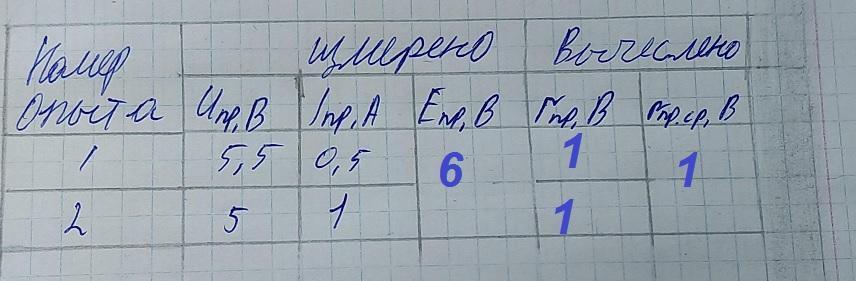 Номер опыта измерено Вычеслено
Uпр,В Iпр,А Eпр,В rпр,В rпр.ср,В
1 5,5 0,5 6 1 1
2 5 1 1